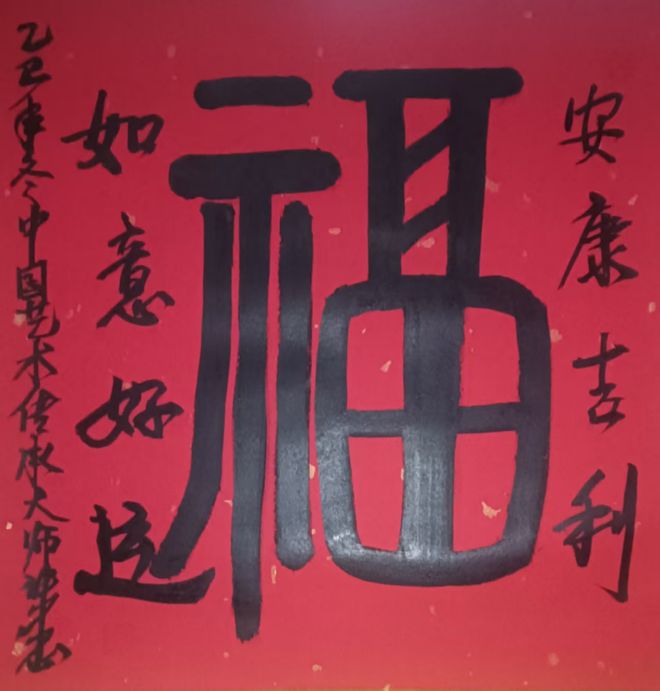 安康吉利
福
如意好运
乙巳年冬中国艺术传承大师